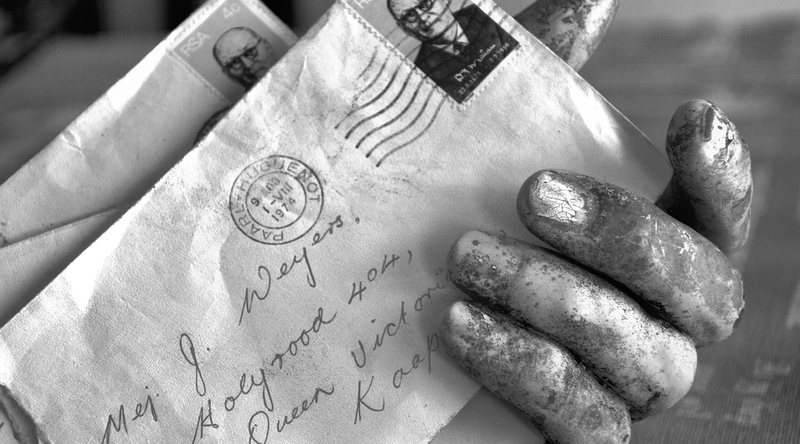 RSA 4c
PAARL-HUGUENOT
1-VIII
1974
Mej. J. Weyers,
Holyrood 404,
Queen Victori
Kaap